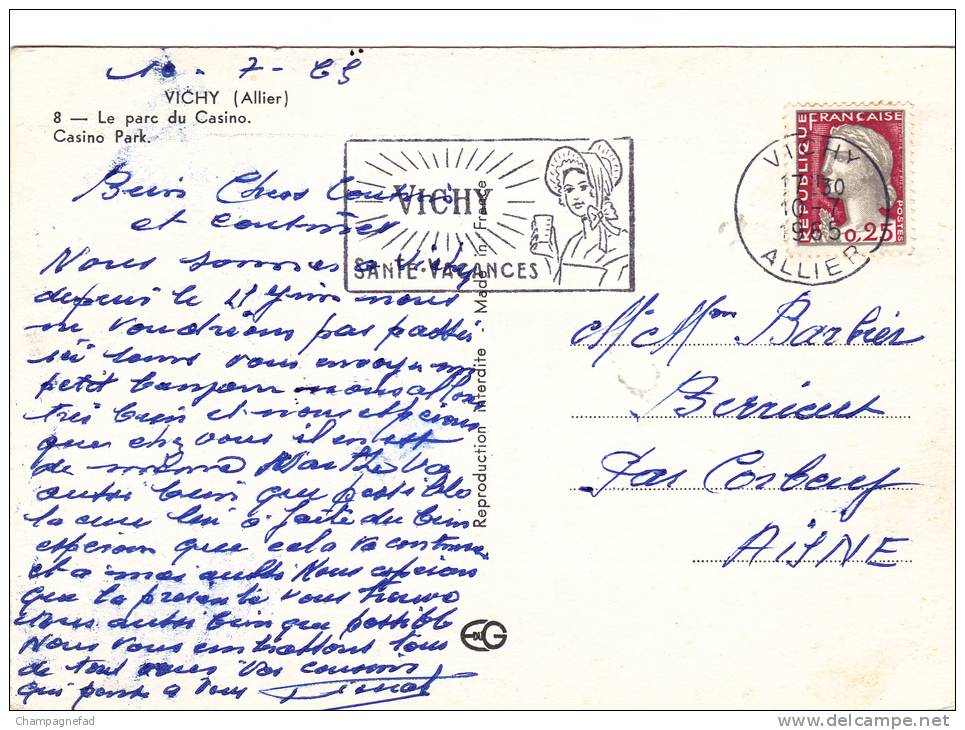 10 - 7 - 65
VICHY (Allier)
8 — Le parc du Casino.
Casino Park.
Bien Chers Cousins
et Cousines
Nous sommes a Vichy
depuis le 21 Juin nous
ne voudrions pas passer
sans vous envoyer un
petit bonjour nous allons
très bien et nous espérons
que chez vous il en est
de même Marthe va
aussi bien que possible
la cure lui a faite du bien
espérons que cela va continuer
et a moi aussi Nous espérons
que la présente vous trouve
tous aussi bien que possible
Nous vous embrassons tous
de tout Vos cousins
qui pense a vous
VICHY
SANTÉ·VACANCES
Reproduction interdite - Made in France
E DU G
RÉPUBLIQUE FRANÇAISE
POSTES
0,25
VICHY
17H30
10-7
1965
ALLIER
M. Mme Barbier
Berrieux
Par Corbeny
AISNE
Champagnefad
www.delcampe.net